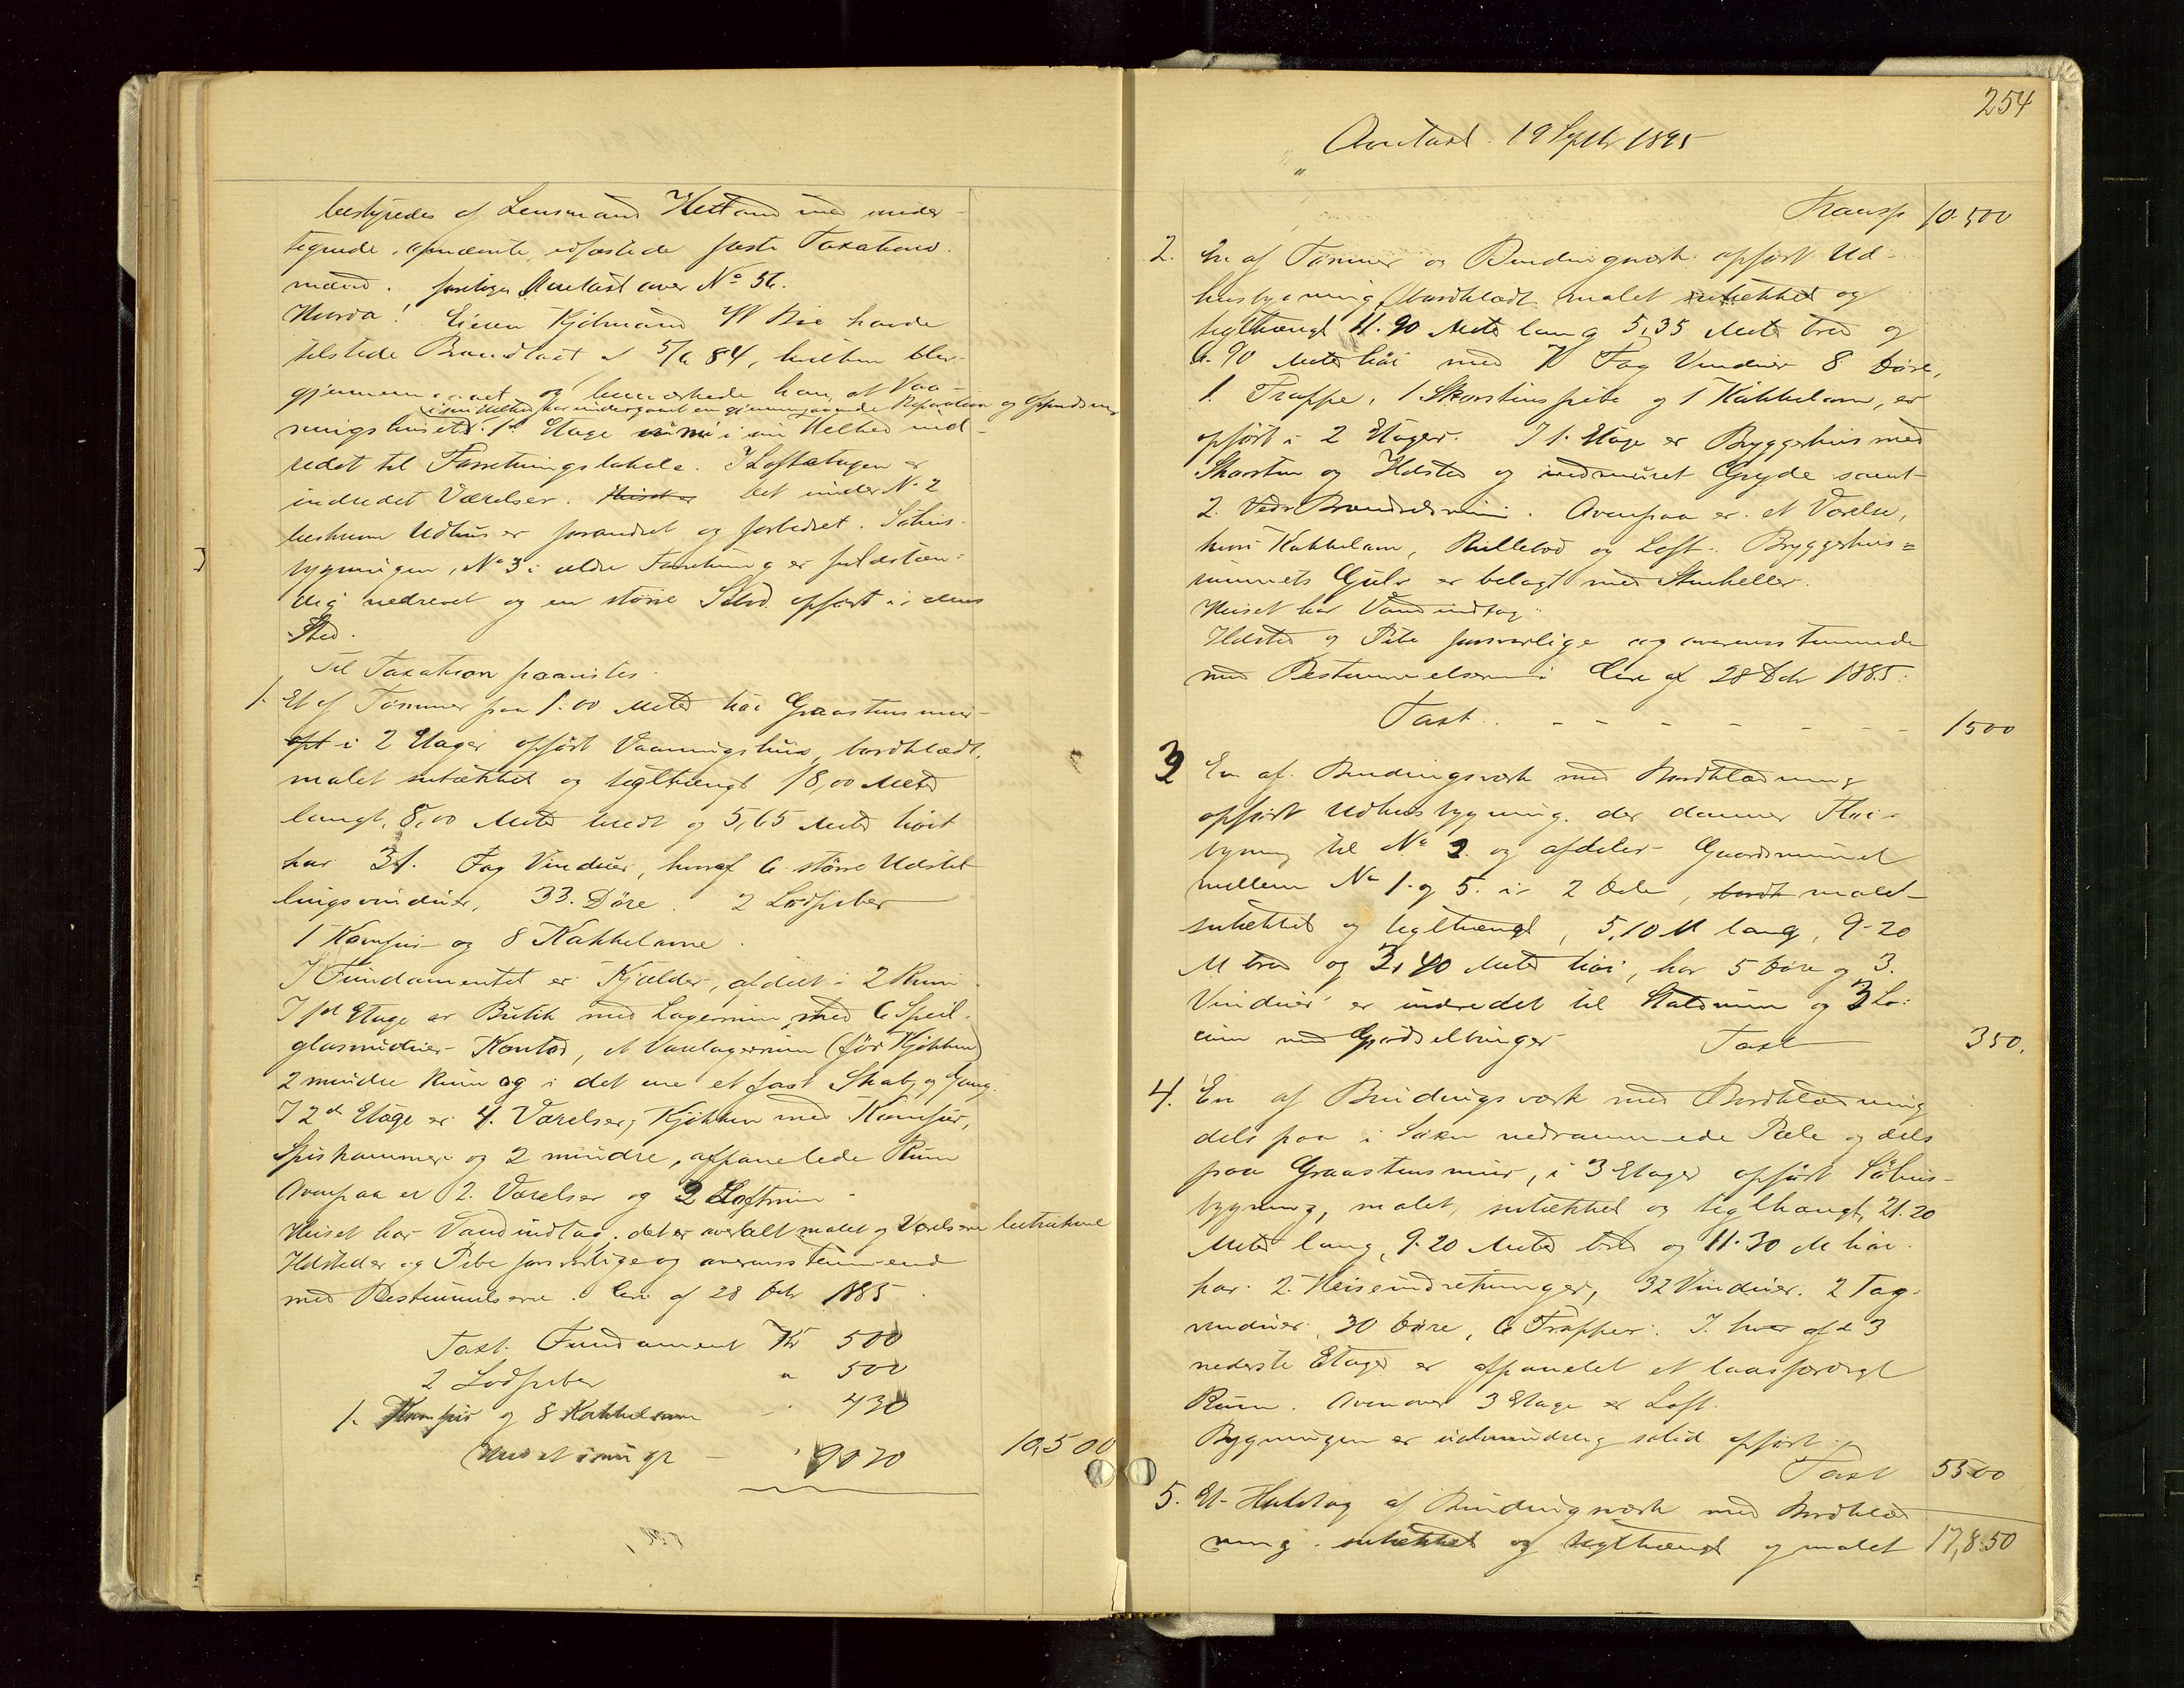 bestyredes af Lensmand Hetland med under-
tegnede, opnævnte, edfæstede faste Taxations-
mænd. foretoges Omtaxt over No 56.
Hvorda! Eieren Kjøbmand W Bie havde
tilstede Brandtaxt af 5/6 84, hvilken blev
og bemærkede han, at Vaa-
i sin Helhed har undergaaet en gjennemgaaende Reparation og Oppudsning
ningshusets 1ste Etage nu i sin Helhed ind-
redet til Forretningslokale. I Loftsetagen er
indredet Værelser. Huset er Det under No 2
beskrevne Udhus er forandret og forbedret. Søhus-
bygningen, No 3 i ældre Forretning er fuldstæn-
dig nedrevet og en større Søbod opført i dens
Sted.
Til Taxation paavistes.
1. Et af Tømmer paa 1.00 Meter høi Graastensmur
opf i 2 Etager opført Vaaningshus, bordklædt,
malet sutækket og teglhængt 18,00 Meter
langt, 8,00 Meter bredt og 5,65 Meter høit
har 31. Fag Vinduer, hvoraf 6 større Udstil
lingsvinduer, 33. Døre. 2 Lodpiber
1 Komfur og 8 Kakkelovne.
I Fundamentet er Kjælder, afdelt i 2 Rum.
I 1ste Etage er Butik med Lagerrum, med 6 Speil-
glasvinduer Kontor, et Varelagerrum (før Kjøkken)
2 mindre Rum og i det ene et fast Skab, og Gang.
I 2den Etage er 4. Værelser, Kjøkken med Komfur,
Spiskammer og 2 mindre, afpanelede Rum
Ovenpaa er 2. Værelser og 2 Loftrum
Huset har Vandindtag, det er overalt malet og Værelserne betrukne
Ildsteder og Pibe forsvarlige og overensstemmend
med Bestemmelserne i Circ af 28 Dcbr 1885.
Taxt. Fundament Kr 500
2 Lodpiber " 500
1. Komfur og 8 Kakkelovne - 430
Huset iøvrigt - 9070 10,500
254
Omtaxt. 19 Septbr 1895
Transp 10.500
2. En af Tømmer og Bindingværk opført Ud-
husbygning, bordklædt malet sutækket og
teglhængt 11.90 Meter lang 5,35 Meter bred og
6.90 Meter høi med 7 Fag Vinduer 8 Døre,
1. Trappe, 1 Skorstenspibe og 1 Kakkelovn, er
opført i 2 Etager. I 1. Etage er Bryggerhus med
Skorsten og Ildsted og indmuret Gryde samt
2. Vedr Brændselsrum. Ovenpaa er et Værelse,
hvori Kakkelovn, Rullebod og Loft. Bryggerhus=
rummets Gulv er belagt med Stenheller.
Huset har Vandindtag
Ildsted og Pibe forsvarlige og overensstemmende
med Bestemmelserne i Circ af 28 Dcbr 1885.
Taxt. - - - - - - - 1500
3 En af Bindingsværk med Bordklædning
opført Udhusbygning, der danner Fløi-
bygning til No 2. og afdeler Gaardsrummet
mellem No 1. og 5. i 2 Dele, bordk malet
sutækket og teglhængt, 5,10 M lang, 9.20
M bred og 3,40 Meter høi, har 5 Døre og 3.
Vinduer er indredet til Staldrum og 3 Lo-
cum med Gjødselbinger Taxt 350.
4. En af Bindingsværk med Bordklædning
dels paa i Søen nedrammede Pæle og dels
paa Graastensmur, i 3 Etager opført Søhus-
bygning, malet, sutækket og teglhængt, 21.20
Meter lang, 9.20 Meter bred og 11.30 M høi.
har 2. Heiseindretninger, 32 Vinduer. 2 Tag-
vinduer, 30 Døre, 6 Trapper. I hver af de 3
nederste Etager er afpanelet et laasfærdigt
Rum. Ovenover 3 Etage er Loft.
Bygningen er udmærket solid opført.
Taxt 5500
5. Et Halvtag af Bindingsværk med Bordklæd
ning, sutækket og teglhængt og malet 17,850